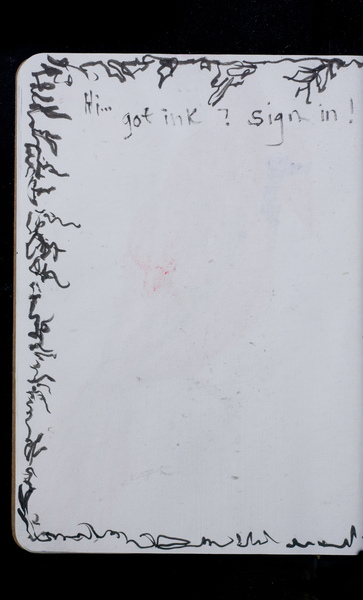 Hi... got ink ? sign in !